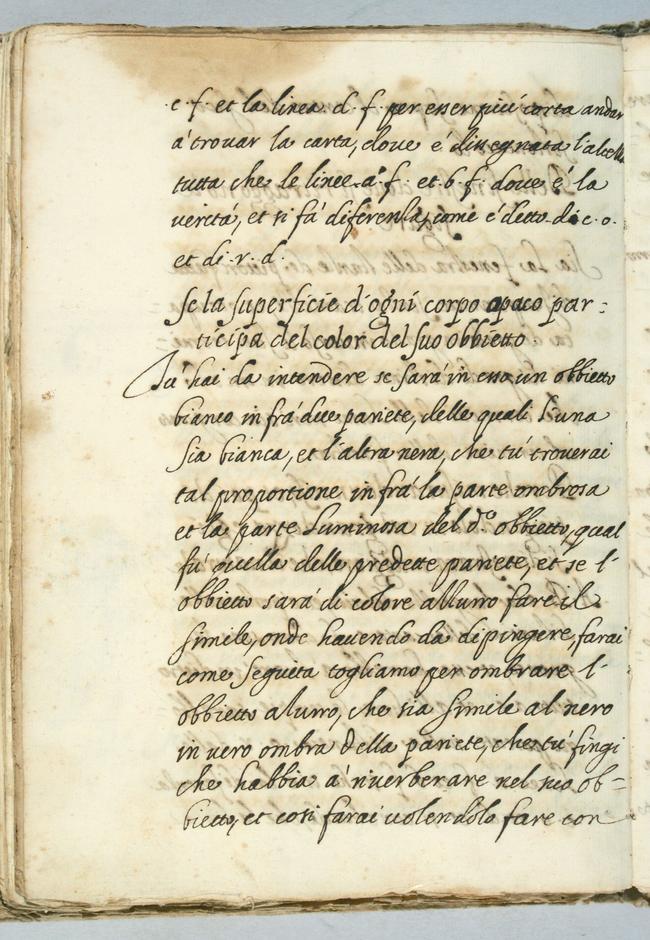 .c. f. et la linea. d. f. per esser piú corta andar
á trovar la carta, dove é dissegnata l'alcella
tutta che le linee. a. f. et b. f. dove é la
veritá, et si fá diferenla, come é detto. di. c. o.
et di. r. d.
Se la superficie d'ogni corpo opaco par:
ticipa del color del suo obbietto.
Tu' hai da intendere se sará in esso un obbietto
bianco in frá due pariete, delle quali l'una
sia bianca, et l'altra nera, che tú troverai
tal proportione in frá la parte ombrosa
et la parte luminosa del d.o obbietto, qual
fú quella delle predette pariete, et se l'
obbietto sará di colore allurro fare il
simile, onde havendo da dipingere, farai
come seguita togliamo per ombrare l'
obbietto alurro, che sia simile al nero
in vero ombra della pariete, che tú fingi
che habbia á riverberare nel tuo ob=
bietto, et cosi farai volendolo fare con